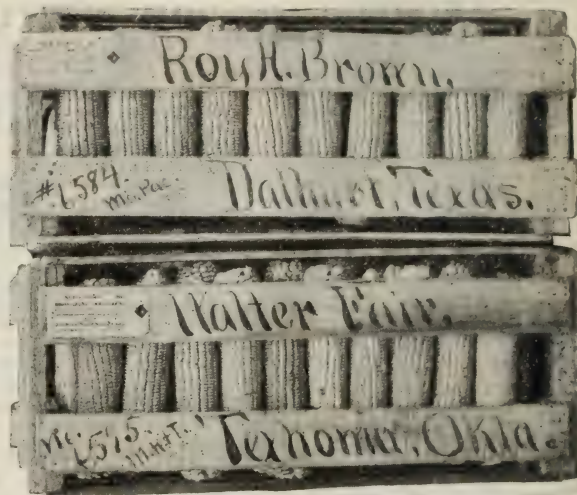 Roy H. Brown.
#1584.
Mo. Pac.
Dalhart, Texas.
Walter Fair.
1515.
M.K&T.
Texhoma, Okla.